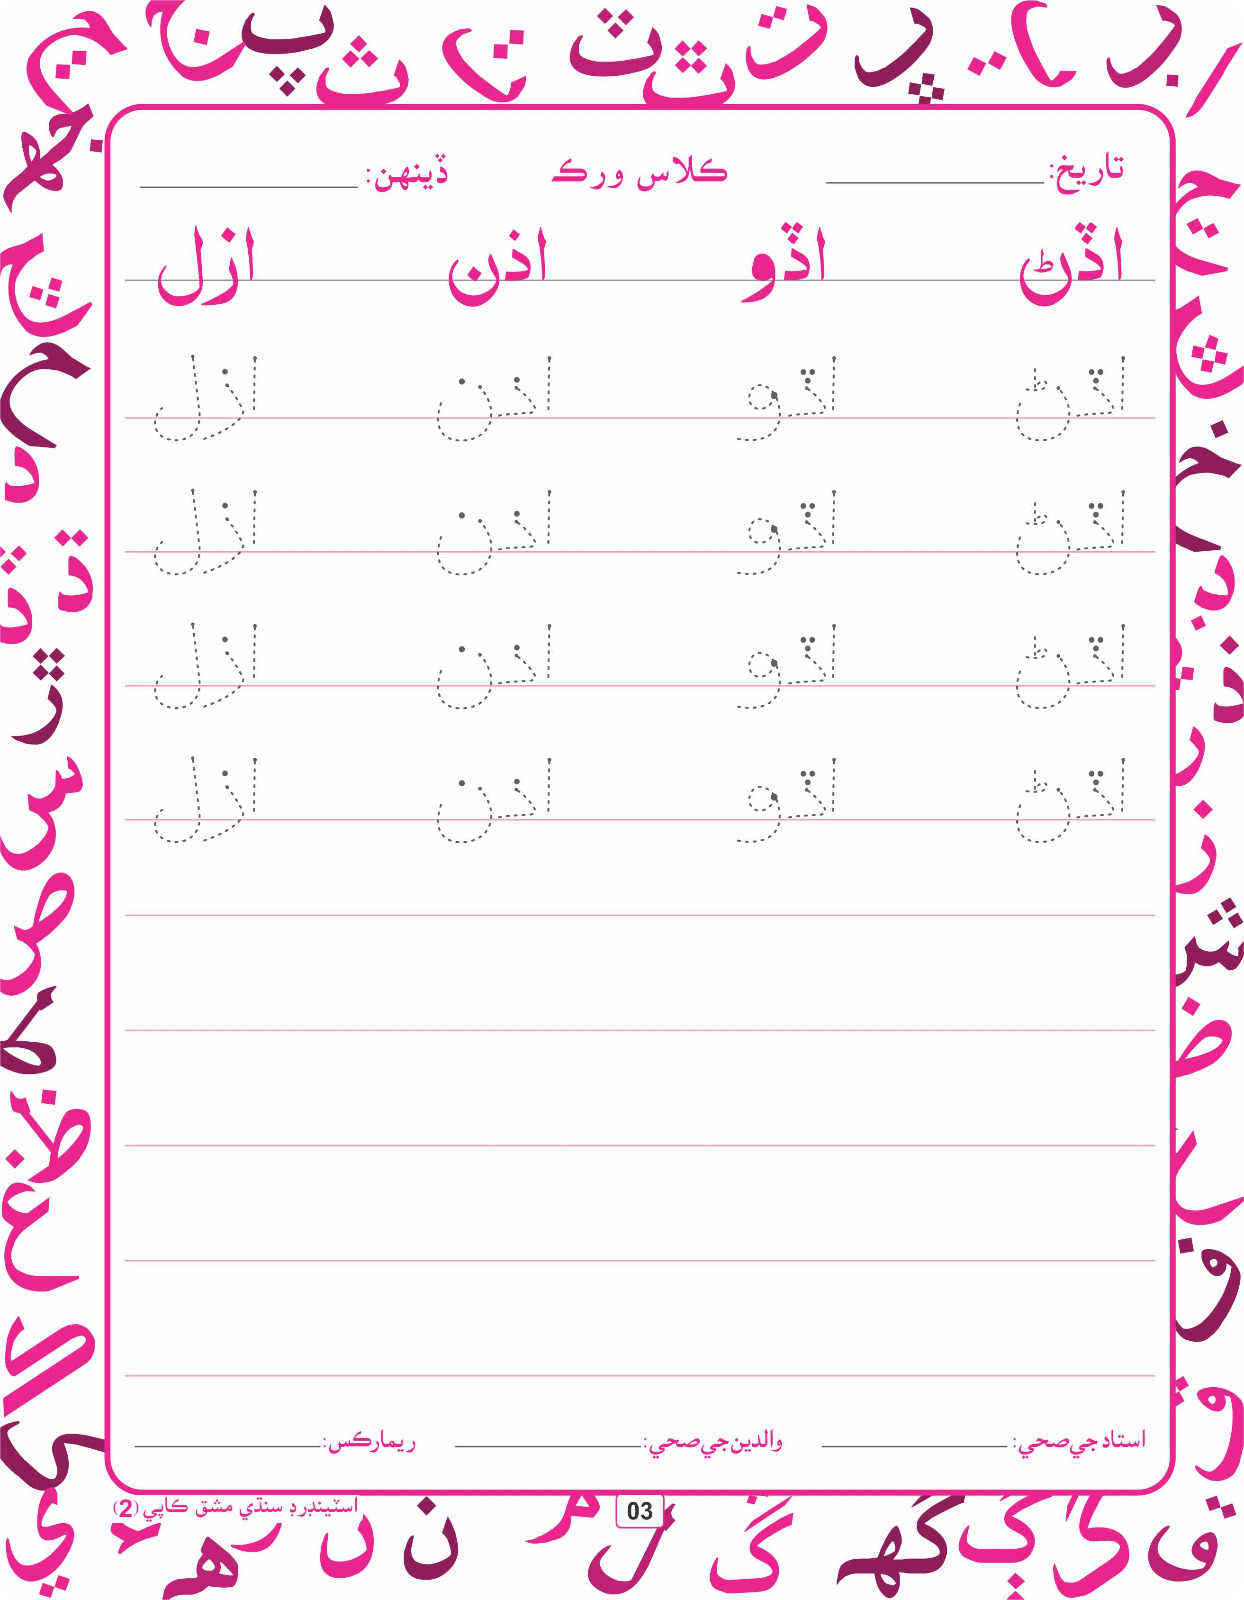 تاريخ: ڪلاس ورڪ ڏينهن:
اڏڻ اڏو اذن ازل
اڏڻ اڏو اذن ازل
اڏڻ اڏو اذن ازل
اڏڻ اڏو اذن ازل
اڏڻ اڏو اذن ازل
استاد جي صحي: والدين جي صحي: ريمارڪس:
03
اسٽينڊرڊ سنڌي مشق ڪاپي (2)